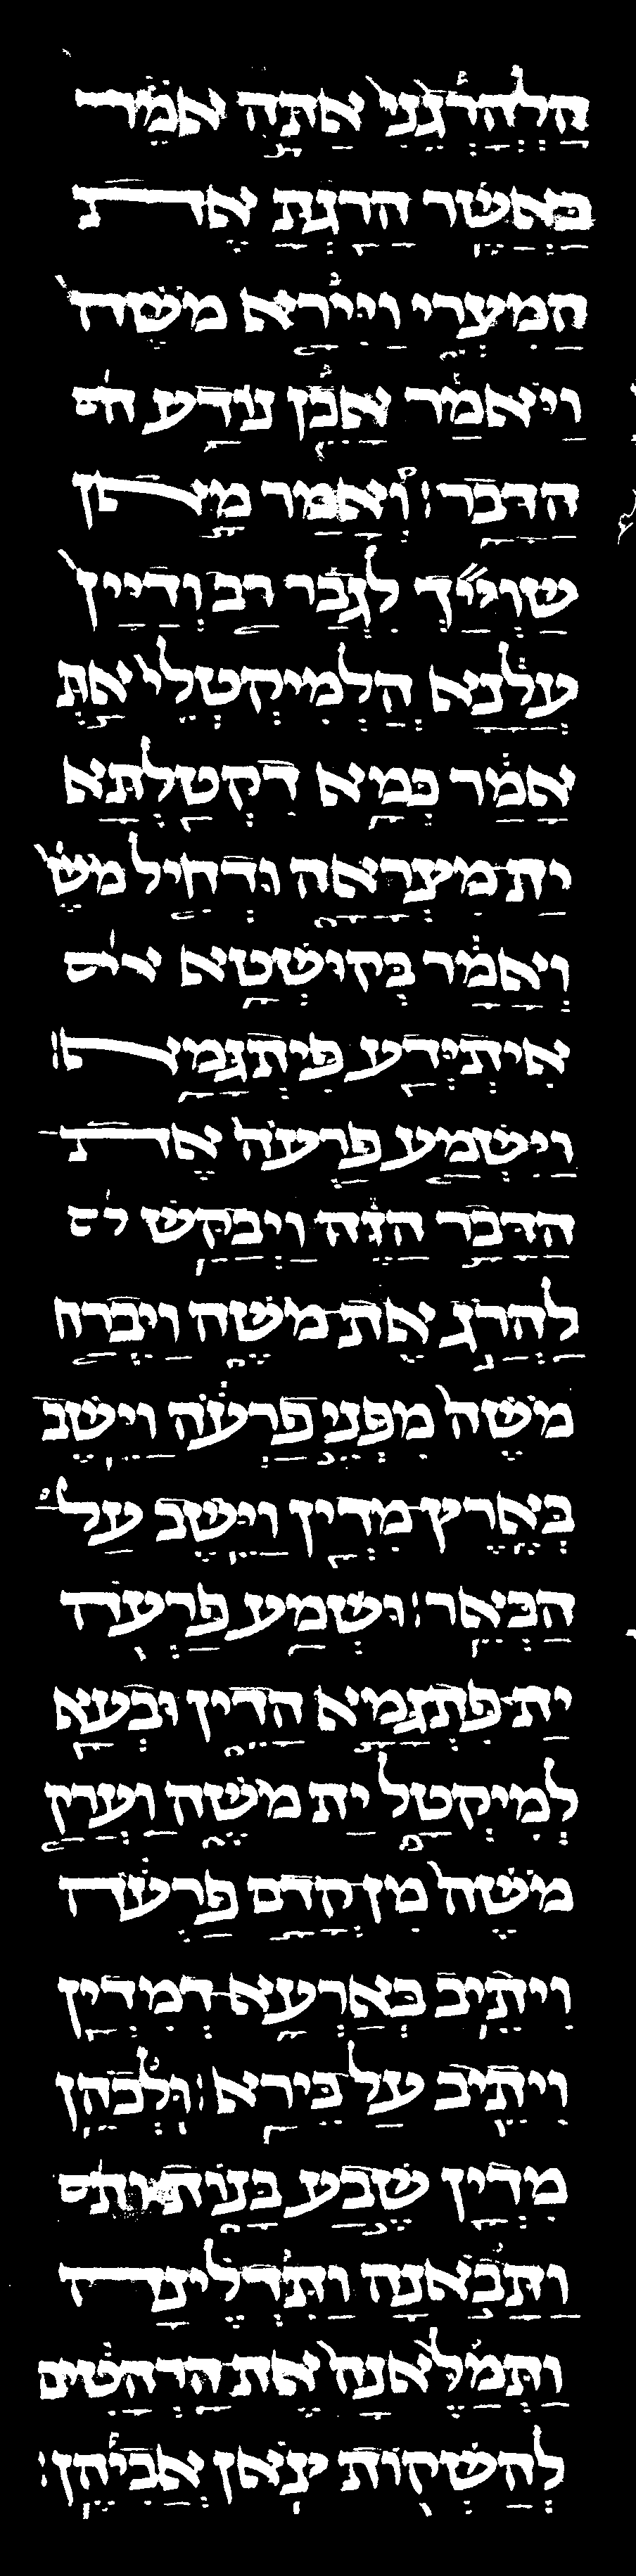 הלהרגני אתה אמר
כאשר הרגת את
המצרי ויירא משה
ויאמר אכן נודע ה
הדבר׃ ואמר מאן
שוייך לגבר רב ודיין
עלנא הלמיקטלי את
אמר כמא דקטלתא
ית מצראה ודחיל מש
ואמר בקושטא א
איתידע פיתגמא׃
וישמע פרעה את
הדבר הזה ויבקש ל
להרג את משה ויברח
משה מפני פרעה וישב
בארץ מדין וישב על
הבאר׃ ושמע פרעה
ית פתגמא הדין ובעא
למיקטל ית משה וערק
משה מן קדם פרעה
ויתיב בארעא דמדין
ויתיב על בירא׃ ולכהן
מדין שבע בנות ות
ותבאנה ותדלינה
ותמלאנה את הרהטים
להשקות צאן אביהן׃